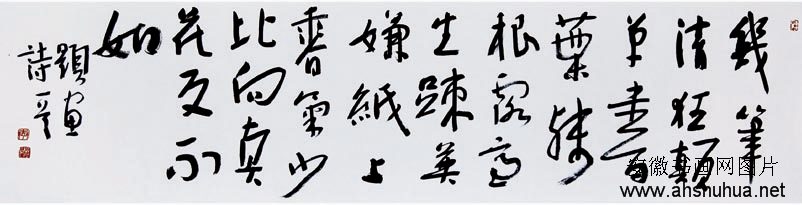 幾筆
清狂顛
草書
葉殘
根露寫
生疎莫
嫌紙上
香氣少
比向真
花反不
如
題画
詩一首
安徽书画网图片
www.ahshuhua.net